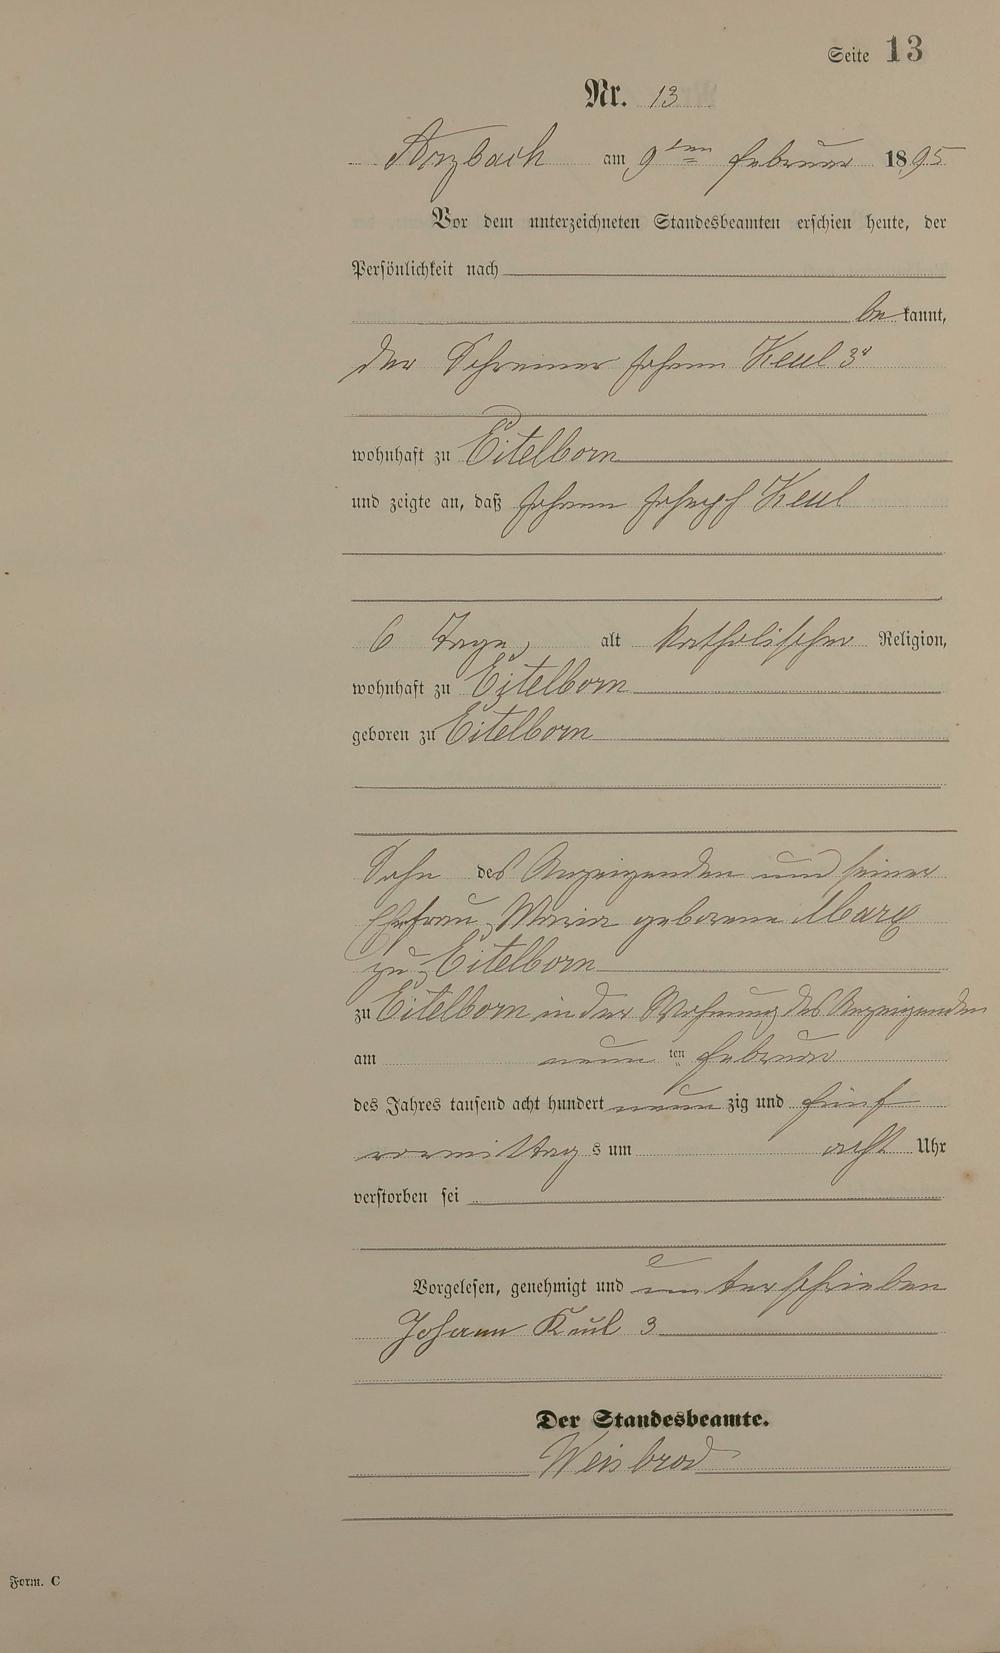 Seite 13
Nr. 13
Arzbach am 9ten Februar 1895
Vor dem unterzeichneten Standesbeamten erschien heute, der
Persönlichkeit nach
bekannt,
der Schreiner Johann Keul 3r
wohnhaft zu Eitelborn
und zeigte an, daß Johann Joseph Keul
6 Tage, alt katholischer Religion,
wohnhaft zu Eitelborn
geboren zu Eitelborn
Sohn des Anzeigenden und seiner
Ehefrau, Maria geborene Marx
zu Eitelborn
zu Eitelborn in der Wohnung des Anzeigenden
am neunten Februar
des Jahres tausend acht hundert neunzig und fünf
vormittags um acht Uhr
verstorben sei
Vorgelesen, genehmigt und unterschrieben
Johann Keul 3
Der Standesbeamte.
Weisbrod
Form. C